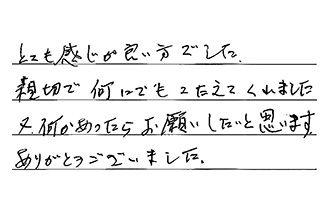 とても感じが良い方でした。
親切で何にでもこたえてくれました
又何かあったらお願いしたいと思います。
ありがとうございました。